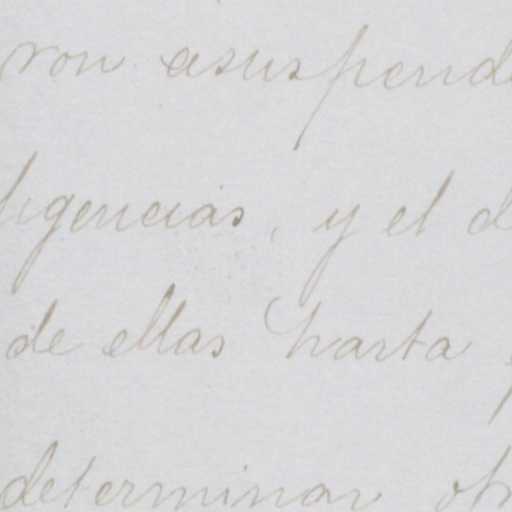 ron asuspend
ligencias, y el d
de ellas hasta
determinar ot